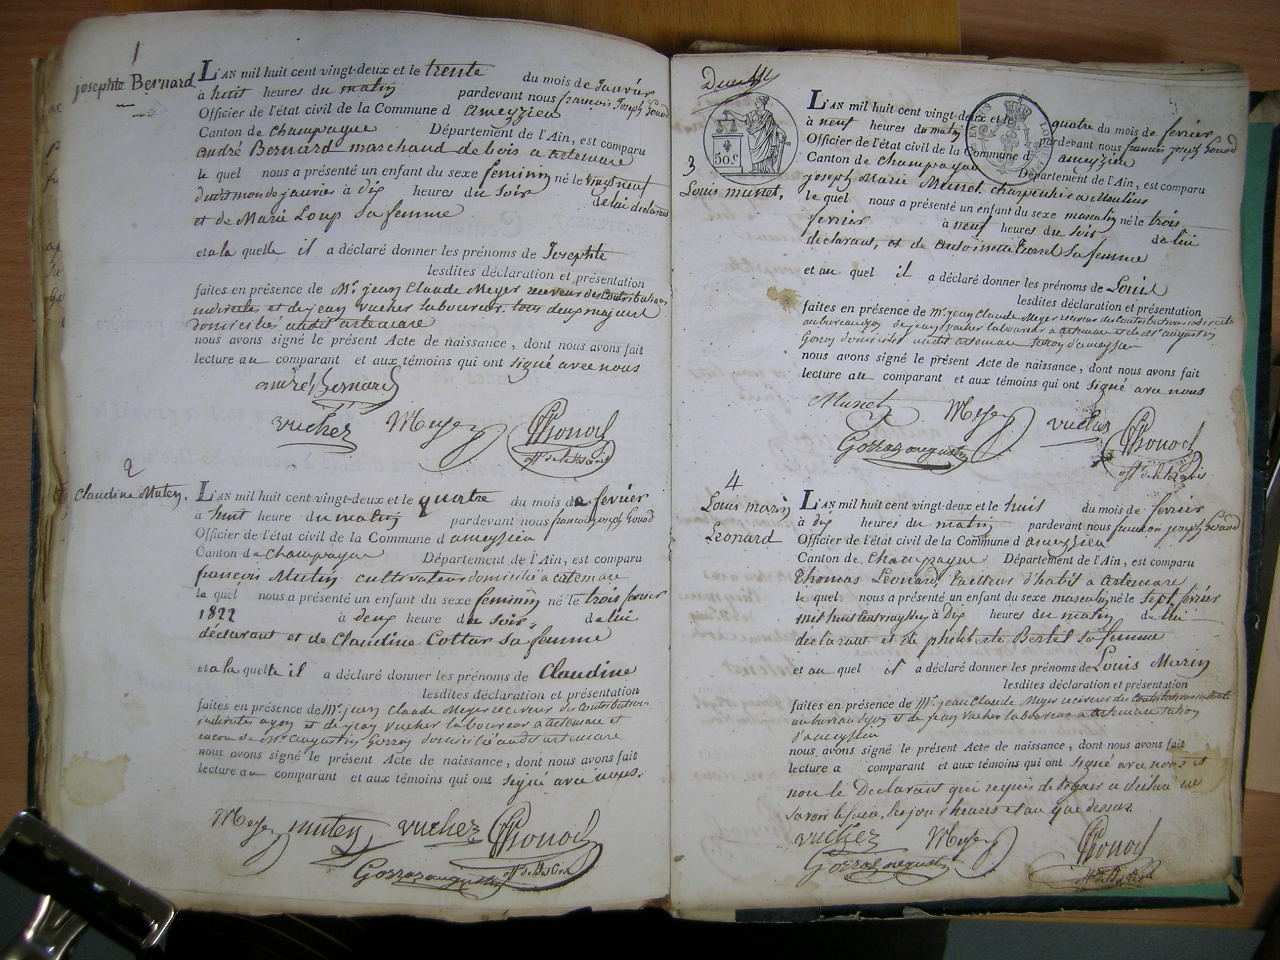 1
josephte Bernard
L'AN mil huit cent vingt-deux et le trente du mois de Janvier
à huit heures du matin pardevant nous françois Joseph
Officier de l'état civil de la Commune d ameyzieu
Canton de Champagne Département de l'Ain, est comparu
andré Bernard marchand de bois a artemare
le quel nous a présenté un enfant du sexe feminin né le vingt neuf
du mois de janvier à dix heures du soir de lui déclarant
et de Marie Loup Sa femme
et a la quelle il a déclaré donner les prénoms de Josephte
lesdites déclaration et présentation
faites en présence de Mr. jean Claude Meyer receveur des Contributions
indirectes et de jean vucher laboureur tous deux majeurs
domiciliés audit artemare
nous avons signé le présent Acte de naissance, dont nous avons fait
lecture au comparant et aux témoins qui ont signé avec nous
andré Bernard
vucher Meyer
2
Claudine Mutin.
L'AN mil huit cent vingt-deux et le quatre du mois de fevrier
à huit heure du matin pardevant nous françois joseph
Officier de l'état civil de la Commune d ameyzieu
Canton de Champagne Département de l'Ain, est comparu
françois Mutin cultivateur domicilié a artemare
le quel nous a présenté un enfant du sexe feminin né le trois fevrier
1822 à deux heure du soir de lui
déclarant et de Claudine Cottar sa femme
et a la quelle il a déclaré donner les prénoms de Claudine
lesdites déclaration et présentation
faites en présence de Mr. jean Claude Meyer receveur des Contributions
indirectes et de jean vucher laboureur a artemare et
de Mr augustin domicilié audit artemare
nous avons signé le présent Acte de naissance, dont nous avons fait
lecture au comparant et aux témoins qui ont signé avec nous.
Meyer mutin vucher
3
Louis munet,
50 c
L'AN mil huit cent vingt-deux et le quatre du mois de fevrier
à neuf heures du matin pardevant nous françois joseph
Officier de l'état civil de la Commune d ameyzieu
Canton de Champagne Département de l'Ain, est comparu
joseph Marie Munet charpentier
le quel nous a présenté un enfant du sexe masculin né le trois
fevrier à neuf heures du soir de lui
déclarant, et de antoinette sa femme
et au quel il a déclaré donner les prénoms de Louis
lesdites déclaration et présentation
faites en présence de Mr jean Claude Meyer receveur des Contributions indirectes
de jean vucher laboureur a artemare et de Mr augustin
nous avons signé le présent Acte de naissance, dont nous avons fait
lecture au comparant et aux témoins qui ont signé avec nous
Munet Meyer vucher
4
Louis marin
Leonard
L'AN mil huit cent vingt-deux et le huit du mois de fevrier
à dix heures du matin pardevant nous françois joseph
Officier de l'état civil de la Commune d ameyzieu
Canton de Champagne Département de l'Ain, est comparu
Thomas Leonard tailleur d'habit a artemare
le quel nous a présenté un enfant du sexe masculin né le sept fevrier
mil huit cent vingt deux à Dix heures du matin de lui
déclarant et de sa femme
et au quel il a déclaré donner les prénoms de Louis Marin
lesdites déclaration et présentation
faites en présence de Mr. jean Claude Meyer receveur des Contributions indirectes
et de jean vucher laboureur a artemare
d'ameyzieu
nous avons signé le présent Acte de naissance, dont nous avons fait
lecture a comparant et aux témoins qui ont signé avec nous et
non le Declarant qui requis de signer a déclaré ne
savoir le faire, les jour heures et an que dessus.
vucher Meyer